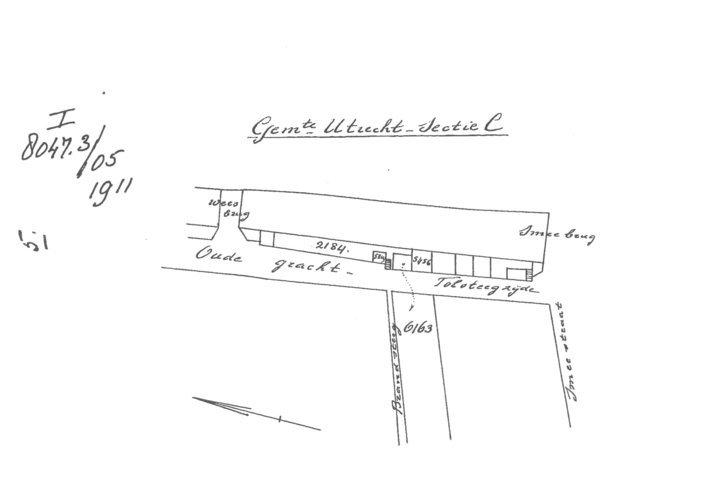 I
8047.3/05
1911
5.
Gemte Utrecht - Sectie C
Wees
brug
Smee brug
2184.
5456
Oude
gracht -
Tolsteegzijde
6163
Brandsteeg
Smeestraat